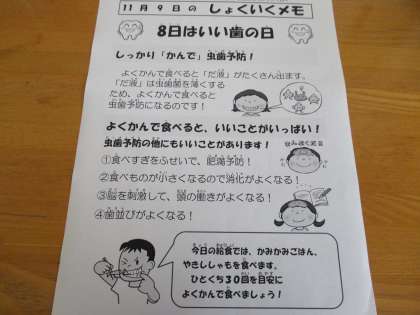 11月9日の しょくいくメモ
8日はいい歯の日
しっかり「かんで」虫歯予防!
よくかんで食べると「だ液」がたくさん出ます。
「だ液」は虫歯菌を薄くする
ため、よくかんで食べると
虫歯予防になるのです!
よくかんで食べると、いいことがいっぱい!
虫歯予防の他にもいいことがあります!
①食べすぎをふせいで、肥満予防!
②食べものが小さくなるので消化がよくなる!
③脳を刺激して、頭の働きがよくなる!
④歯並びがよくなる!
今日の給食では、かみかみごはん、
やきししゃもを食べます。
ひとくち30回を目安に
よくかんで食べましょう!